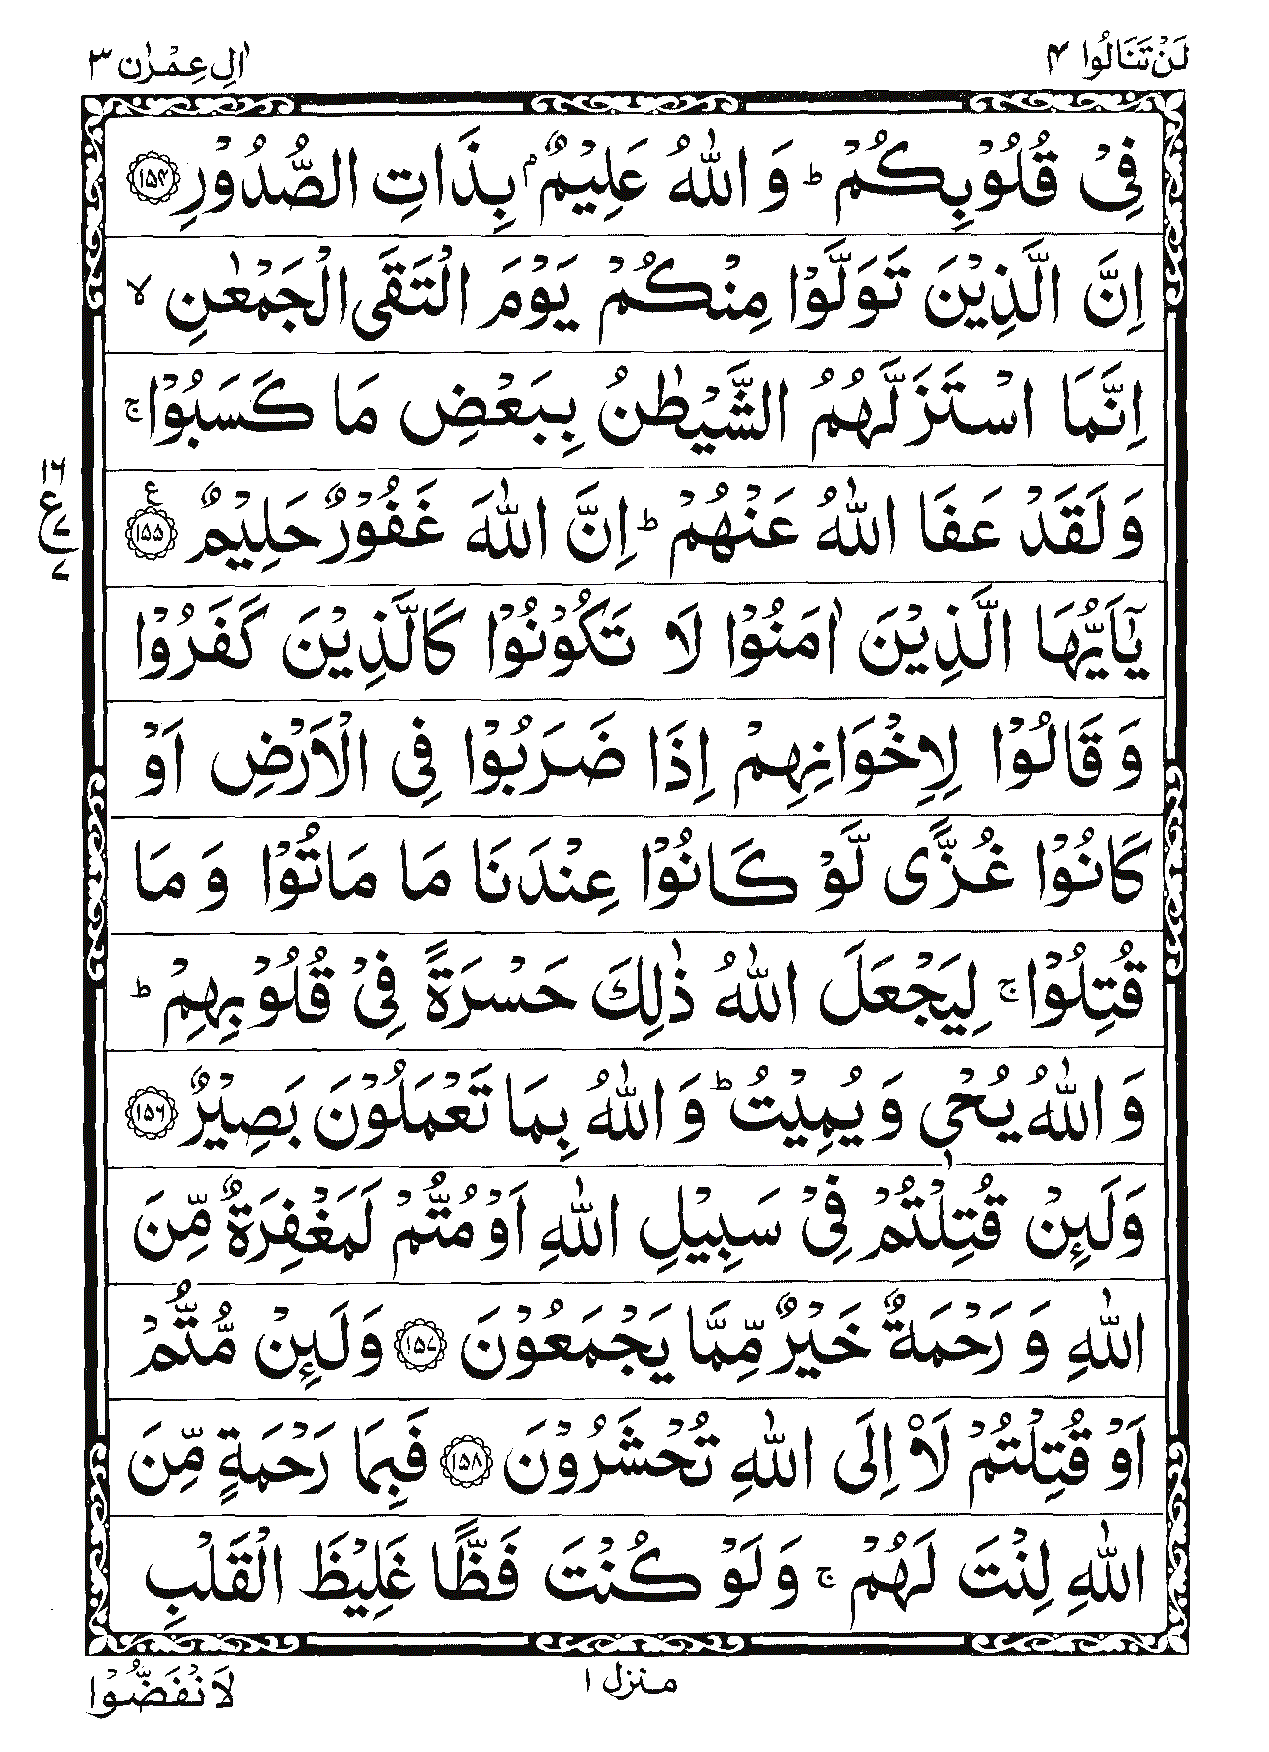 لَنْ تَنَالُوا ۴
اٰلِ عِمْرٰن ۳
فِیْ قُلُوْبِكُمْ ؕ وَ اللّٰهُ عَلِیْمٌۢ بِذَاتِ الصُّدُوْرِ ۝۱۵۴
اِنَّ الَّذِیْنَ تَوَلَّوْا مِنْكُمْ یَوْمَ الْتَقَی الْجَمْعٰنِ ۙ
اِنَّمَا اسْتَزَلَّهُمُ الشَّیْطٰنُ بِبَعْضِ مَا كَسَبُوْا ۚ
وَ لَقَدْ عَفَا اللّٰهُ عَنْهُمْ ؕ اِنَّ اللّٰهَ غَفُوْرٌ حَلِیْمٌ ۝۱۵۵ ع
۱۶
ع
۷
۷
یٰۤاَیُّهَا الَّذِیْنَ اٰمَنُوْا لَا تَكُوْنُوْا كَالَّذِیْنَ كَفَرُوْا
وَ قَالُوْا لِاِخْوَانِهِمْ اِذَا ضَرَبُوْا فِی الْاَرْضِ اَوْ
كَانُوْا غُزًّی لَّوْ كَانُوْا عِنْدَنَا مَا مَاتُوْا وَ مَا
قُتِلُوْا ۚ لِیَجْعَلَ اللّٰهُ ذٰلِكَ حَسْرَةً فِیْ قُلُوْبِهِمْ ؕ
وَ اللّٰهُ یُحْیٖ وَ یُمِیْتُ ؕ وَ اللّٰهُ بِمَا تَعْمَلُوْنَ بَصِیْرٌ ۝۱۵۶
وَلَىِٕنْ قُتِلْتُمْ فِیْ سَبِیْلِ اللّٰهِ اَوْ مُتُّمْ لَمَغْفِرَةٌ مِّنَ
اللّٰهِ وَ رَحْمَةٌ خَیْرٌ مِّمَّا یَجْمَعُوْنَ ۝۱۵۷ وَلَىِٕنْ مُّتُّمْ
اَوْ قُتِلْتُمْ لَاۡ اِلَی اللّٰهِ تُحْشَرُوْنَ ۝۱۵۸ فَبِمَا رَحْمَةٍ مِّنَ
اللّٰهِ لِنْتَ لَهُمْ ۚ وَلَوْ كُنْتَ فَظًّا غَلِیْظَ الْقَلْبِ
منزل ۱
لَا نْفَضُّوْا